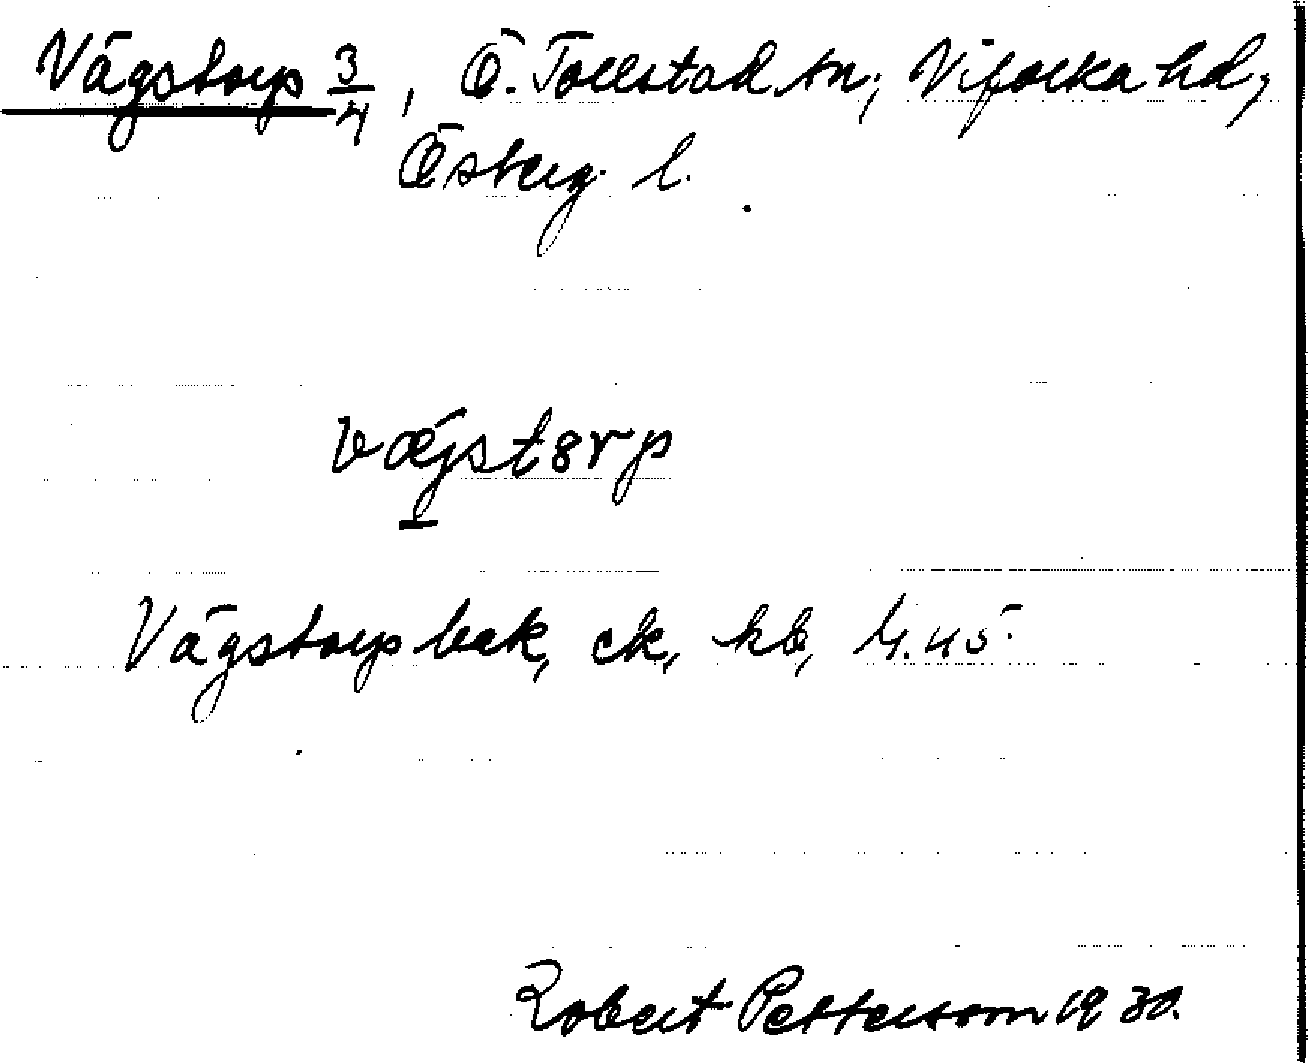 Vägstorp 3/4, Ö. Tollstad sn, Vifolka hd,
Österg. l.
væjstɞrp
Vägstorp bek, ck, kb, 4.45.
Robert Petterson 1930.